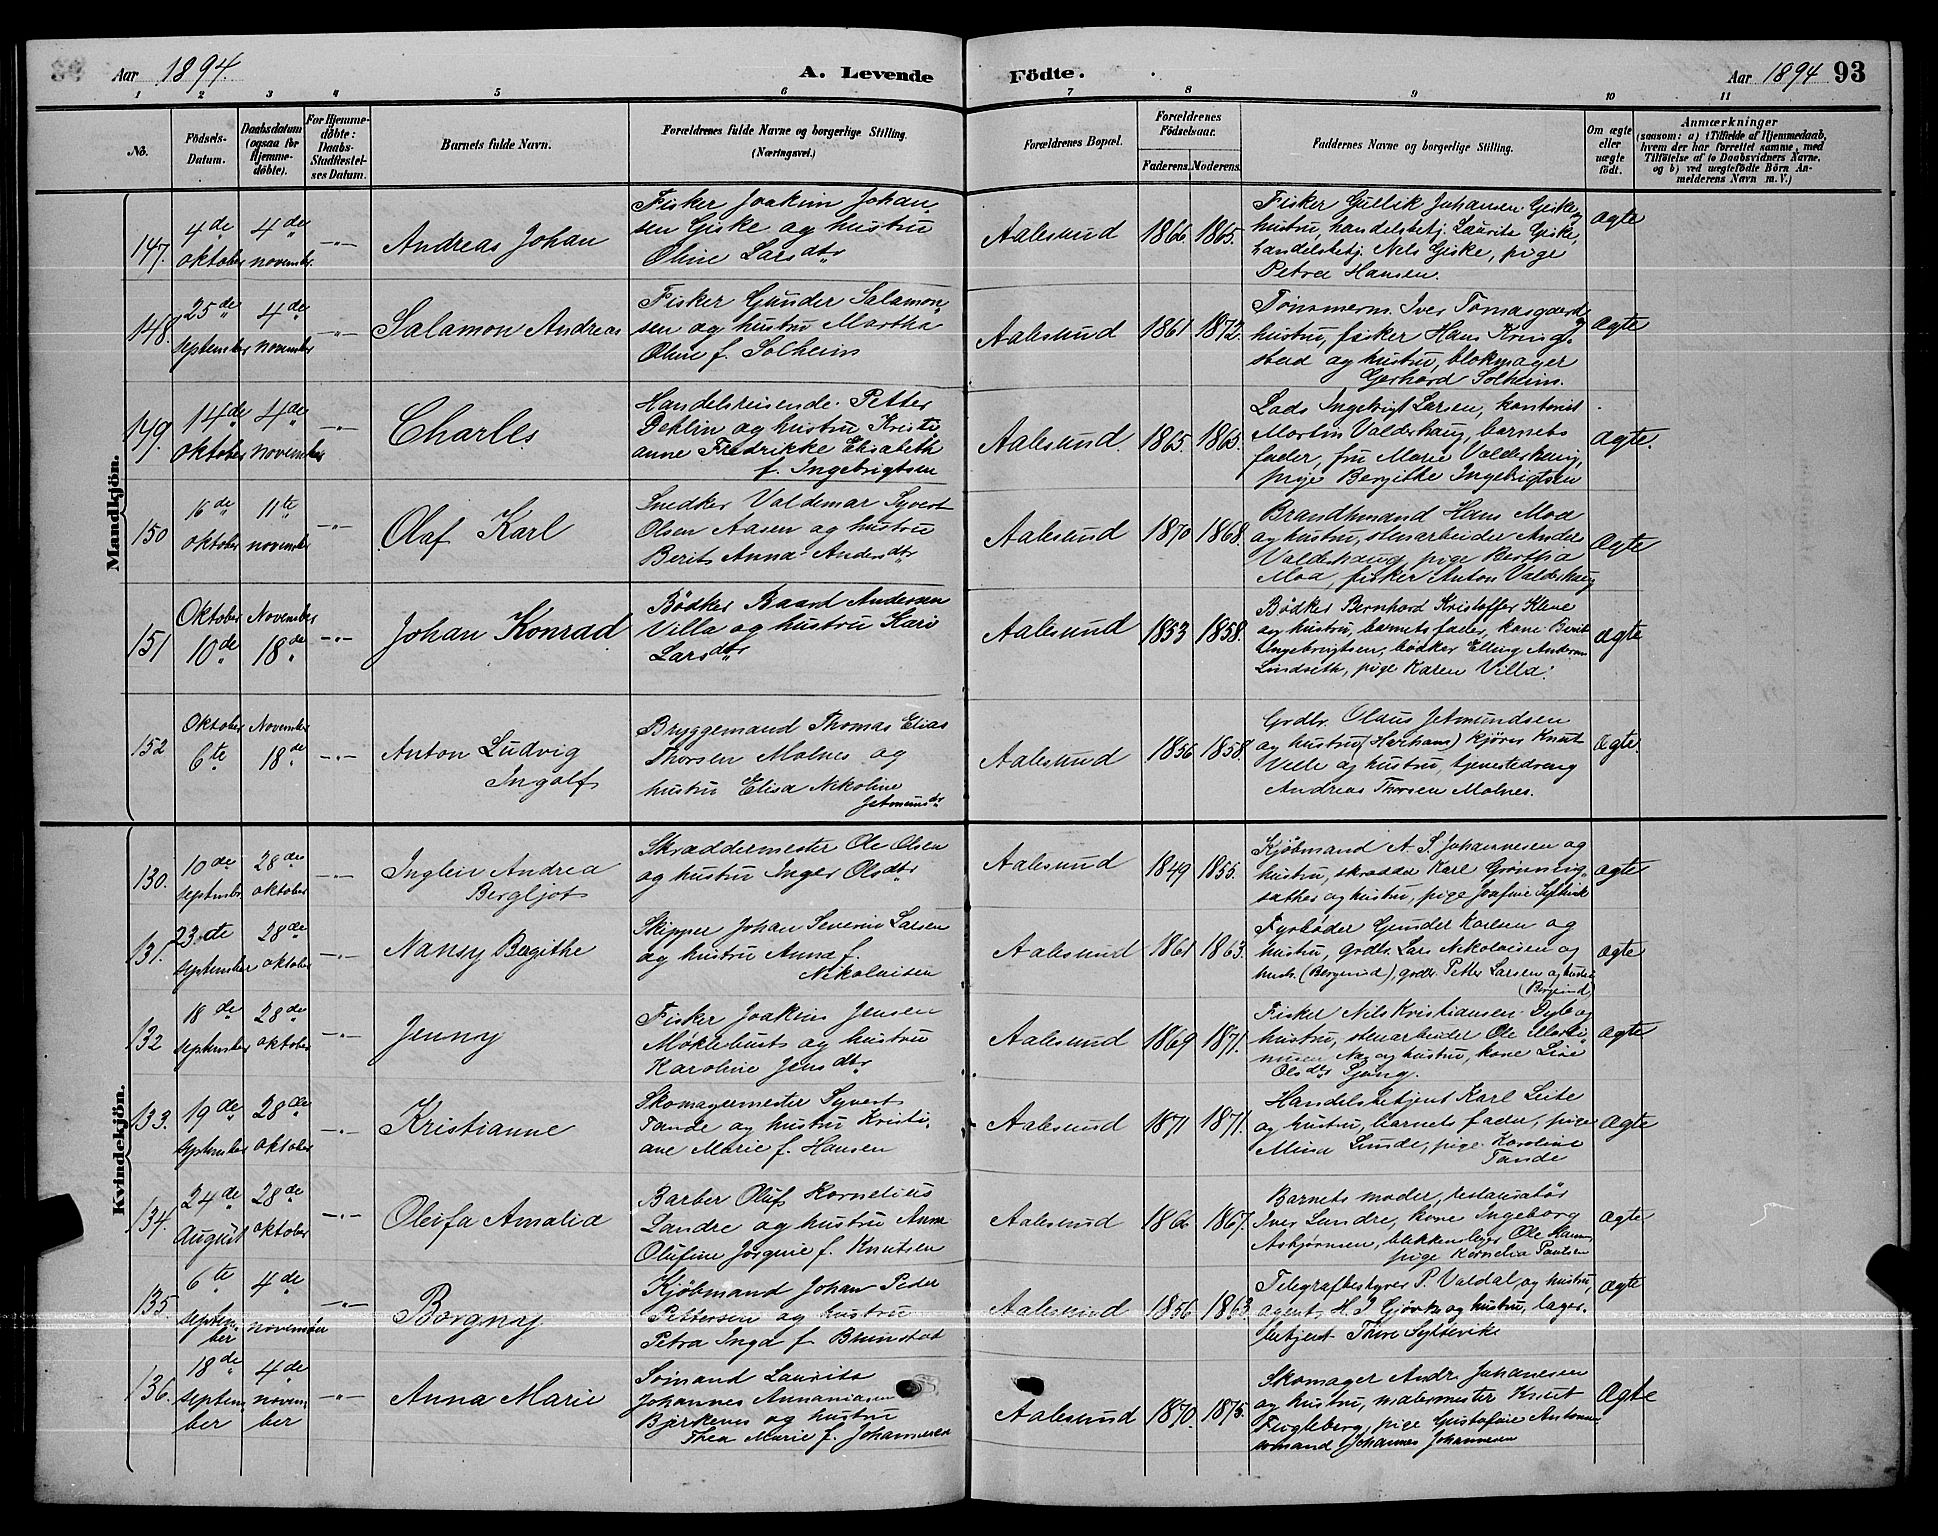 Aar 1894. A. Levende Födte. Aar 1894 93
1 2 3 4 5 6 7 8 9 10 11
No.
Födsels-Datum.
Daabsdatum (ogsaa for Hjemmedöbte).
For Hjemmedöbte: Daabs-Stadfæstelses Datum.
Barnets fulde Navn.
Forældrenes fulde Navne og borgerlige Stilling.
(Næringsvei.)
Forældrenes Bopæl.
Forældrenes Födselsaar.
Faderens. Moderens.
Faddernes Navne og borgerlige Stilling.
Om ægte eller uægte födt.
Anmærkninger
(saasom: a) i Tilfælde af Hjemmedaab,
hvem der har forrettet samme, med
Tilföielse af to Daabsvidners Navne.
og b) ved uægtefödte Börn Anmelderens Navn m. V.)
Mandkjön.
147. 4de oktober 4de november -"- Andreas Johan
Fisker Joakim Johan-
sen Giske og hustru
Oline Larsdtr
Aalesund 1866 1865.
Fisker Gullik Johansen Giske og
hustru, handelsbetj. Laurits Giske,
handelsbetj. Nels Giske, pige
Petra Hansen.
ægte
148. 25de september 4de november -"- Salamon Andreas
Fisker Gunder Salamon-
sen og hustru Martha
Oline f. Solheim
Aalesund 1861 1872.
Tömmerm. Iver Tomasgaard og
hustru, fisker Hans
stad og hustru, blokmager
Gerhard Solheim.
ægte
149. 14de oktober 4de november -"- Charles
Handelsreisende Petter
Dehlin og hustru Kristi-
anne Fredrikke Elisabeth
f. Ingebrigtsen
Aalesund. 1865 1865.
Lods Ingebrigt Larsen, kontorist
Martin Valderhaug, barnets
fader, fru Marie Valderhaug,
pige Bergithe Ingebrigtsen
ægte.
150 16de oktober 11te november -"- Olaf Karl
Snedker Valdemar Syvert
Olsen Aasen og hustru
Berit Anna Andersdtr
Aalesund 1870 1868.
Brandmand Hans Moa
og hustru, stenarbeider Anders
Valderhaug, pige Berthia
Moa, fisker Anton Valderhaug
ægte
151 Oktober 10de November 18de -"- Johan Konrad
Bödker Baard Andersen
Villa og hustru Kari
Larsdtr
Aalesund 1853 1858.
Bödker Bernhard Kristoffer Kleve
og hustru, barnets fader, kone Berit
Ingebrigtsen, bödker Elling Andersen
Lindseth, pige Karen Villa.
ægte
152 Oktober 6te November 18de -"- Anton Ludvig
Ingolf
Bryggemand Thomas Elias
Thorsen Molnes og
hustru Elisa Nikoline
Jetmundsdtr
Aalesund 1856 1858.
Grdbr. Olaus Jetmundsen
og hustru (Harham) kjörer Knut
Velle og hustru, tjenestedreng
Andreas Thorsen Molnes.
ægte
Kvindekjön.
130. 10de september 28de oktober -"- Andrea
Bergljot
Skræddermester Ole Olsen
og hustru Inger Olsdtr
Aalesund 1849 1855.
Kjöbmand A. S. Johannesen og
hustru, skrædder Karl
sæther og hustru, pige Josefine
ægte
131. 23de september 28de oktober -"- Nansy Bergithe
Skipper Johan Severin Larsen
og hustru Anna f.
Nikolaisen
Aalesund 1861 1863.
Fyrböder Gunder Karlsen og
hustru, grdbr. Lars Nikolaisen og
hustr. (Borgund), grdbr. Petter Larsen og hustru
(Borgund)
ægte
132 18de september 28de oktober -"- Jenny
Fisker Joakim Jensen
Möklebust og hustru
Karoline Jensdtr
Aalesund 1869 1871.
Fisker Nils Kristiansen Dyb og
hustru, stenarbeider Ole Marti-
nusen og hustru, kone Lise
Olsdtr
ægte
133. 19de september 28de oktober -"- Kristianne
Skomagermester Syvert
Tande og hustru Kristi-
ane Marie f. Hansen
Aalesund 1871 1871.
Handelsbetjent Karl Leite
og hustru, barnets fader, pige
Mina Lunde, pige Karoline
Tande
ægte
134. 24de August 28de oktober -"- Oleifa Amalia
Barber Oluf Kornelius
Landre og hustru Anna
Olufine Jörgine f. Knutsen
Aalesund 1867.
Barnets moder, restauratör
Iver Landre, kone Ingeborg
Asbjörnsen, blikkenslager Ole
pige Kornelia
ægte
135 6te september 4de november -"- Borgny
Kjöbmand Johan Peder
Pettersen og hustru
Petra Inga f. Brunstad
Aalesund 1856 1863
Telegrafbestyrer P. Valdal og hustru,
agent H. J. Gjörtz og hustru, lager-
betjent Syltevike
ægte
136. 18de september 4de november -"- Anna Marie
Sömand Laurits
Johannes Annaniasen
Bjerknes og hustru
Thea Marie f. Johannesen
Aalesund 1870. 1875.
Skomager Andr. Johannesen
og hustru, malermester Knut
Fugleberg, pige Gustafine Antonsen,
sömand Johannes Johannesen
ægte